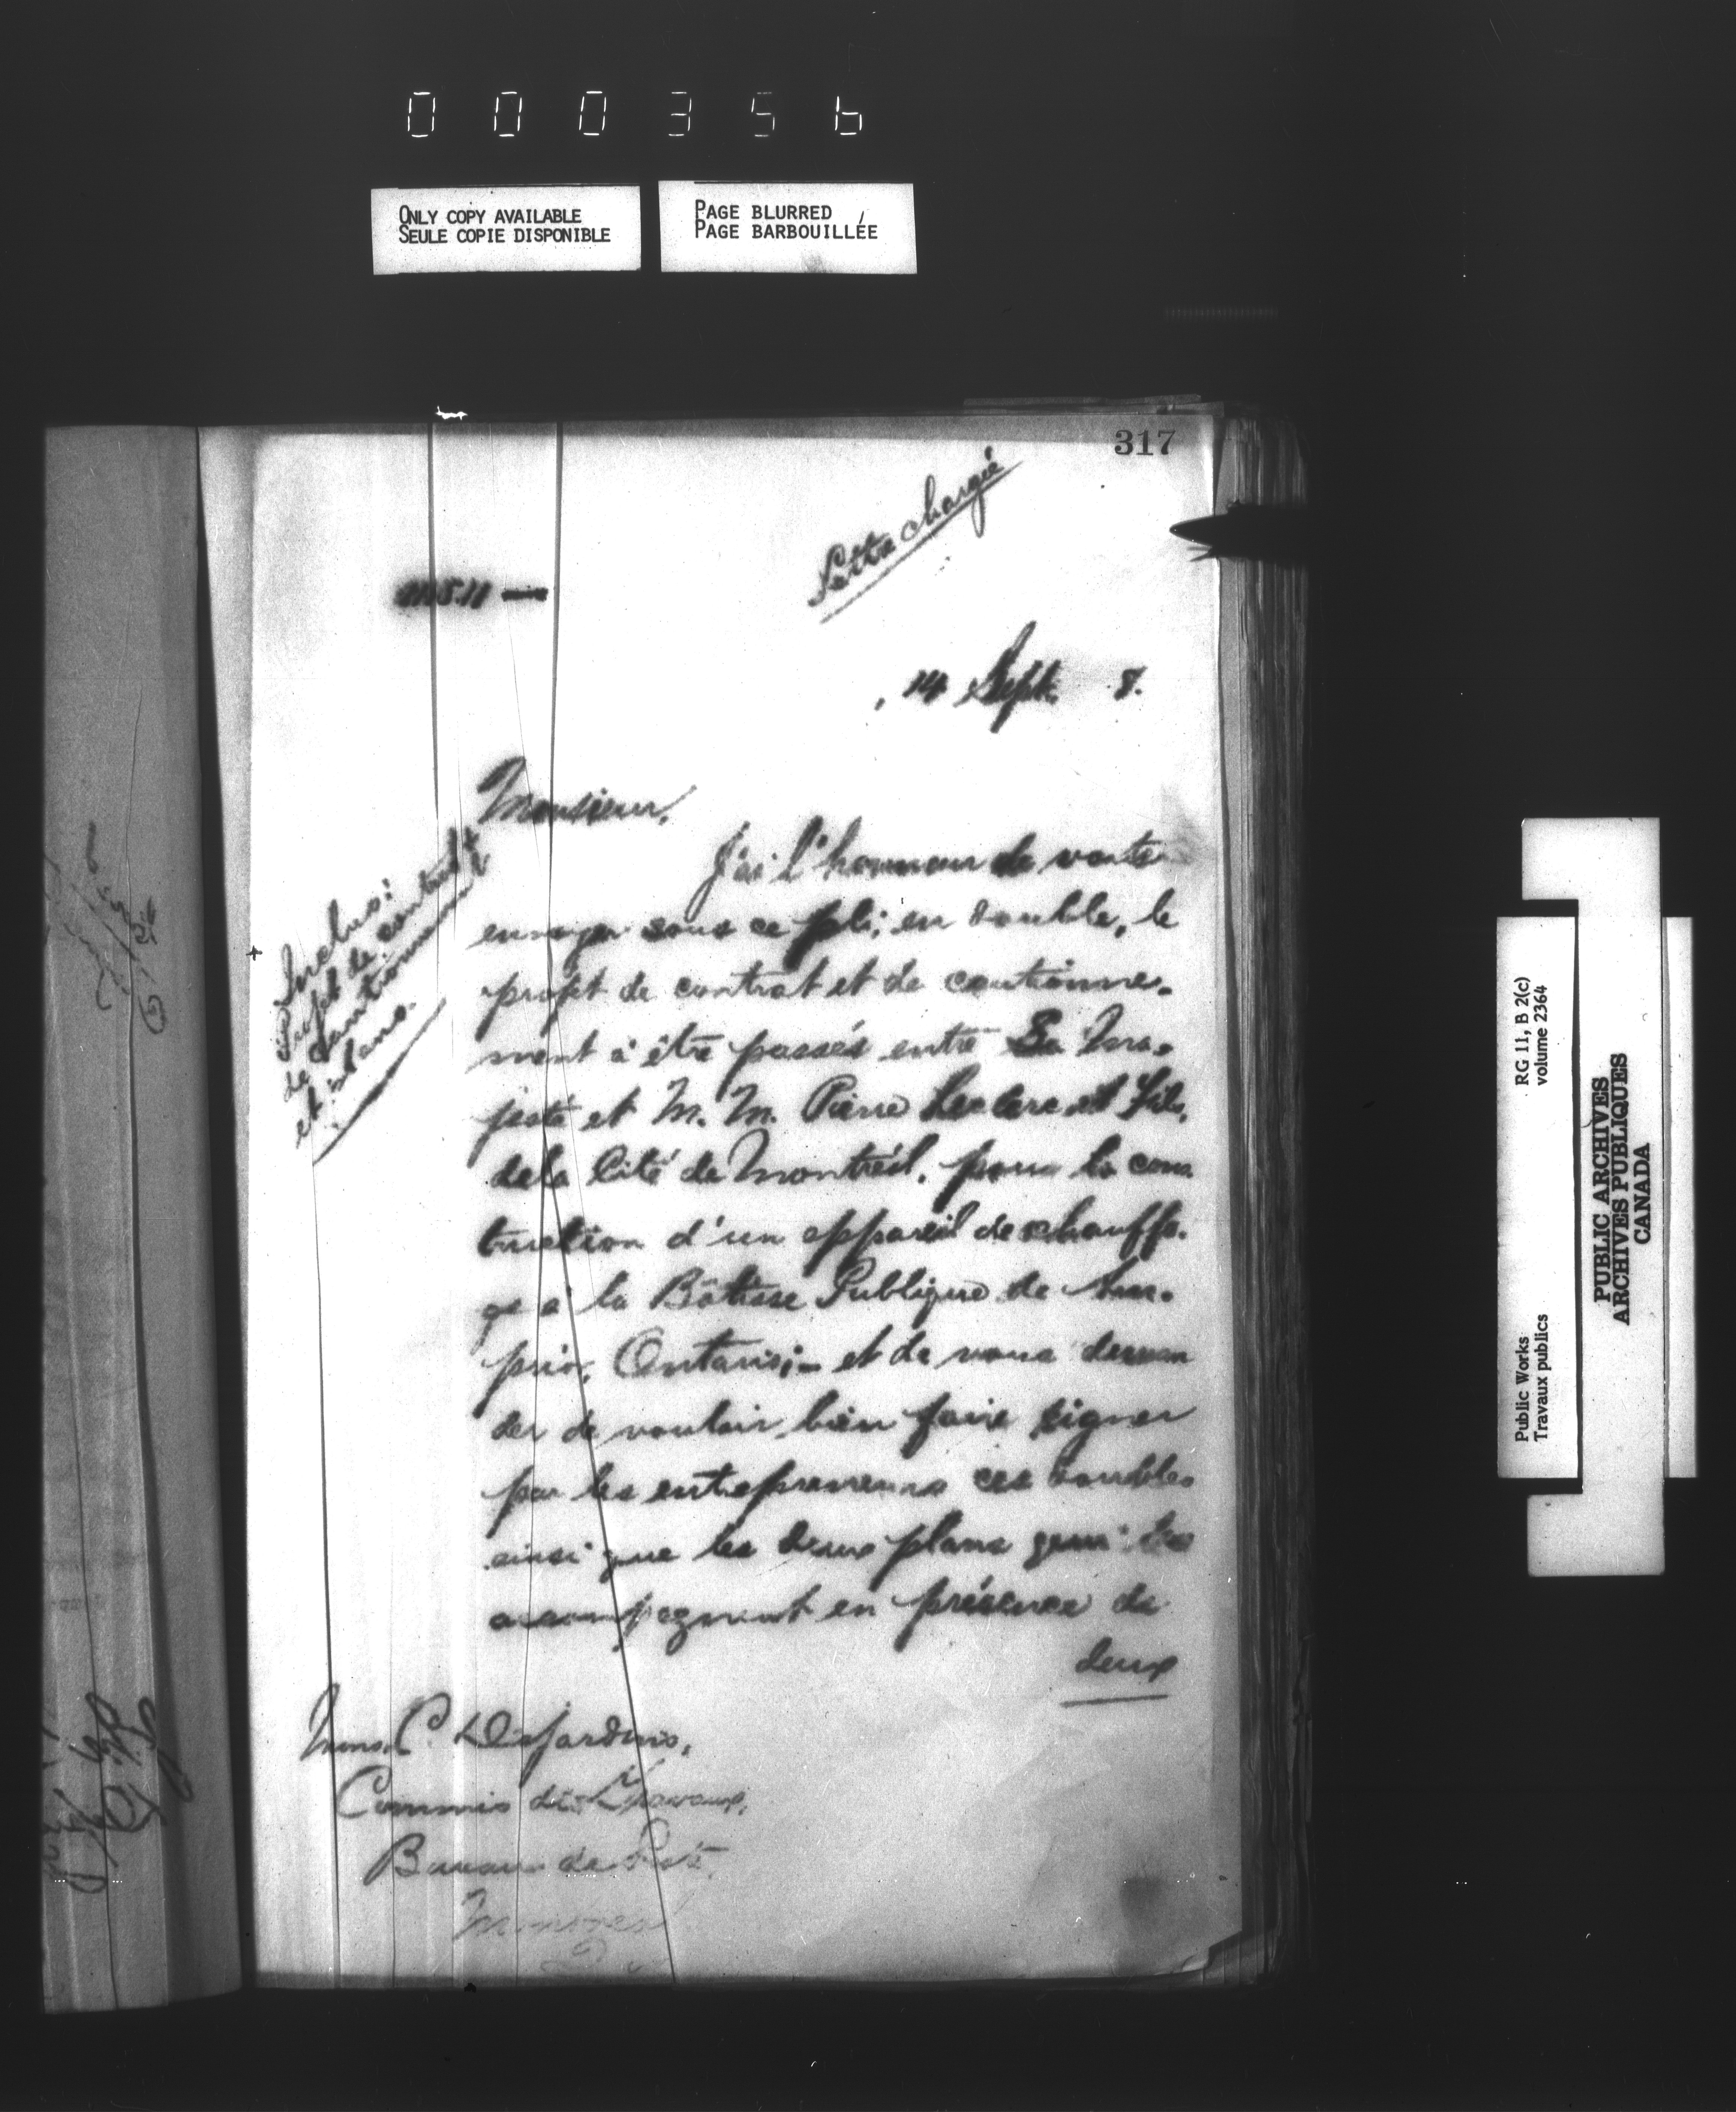 000356
ONLY COPY AVAILABLE
SEULE COPIE DISPONIBLE
PAGE BLURRED
PAGE BARBOUILLÉE
317
Lettre chargée
14 Sept. 8.
Monsieur,
J'ai l'honneur de vous
envoyer sous ce pli, en double, le
projet de contrat et de cautionne-
ment à être passés entre Sa Ma-
jesté et M. M. Pierre Leclerc et Fils,
de la Cité de Montréal, pour la cons
truction d'un appareil de chauffa-
ge à la Bâtisse Publique de Arn-
prior, Ontario;- et de vous deman
der de vouloir bien faire signer
par les entrepreneurs ces doubles
ainsi que les deux plans qui les
accompagnent en présence de
deux
Inclus:
Projet de contrat
de cautionnement
et plans.
Mons. C. Desjardins,
Commis des Travaux,
Bureau de Poste,
Montréal
Public Works
Travaux publics
RG 11, B 2(c)
volume 2364
PUBLIC ARCHIVES
ARCHIVES PUBLIQUES
CANADA